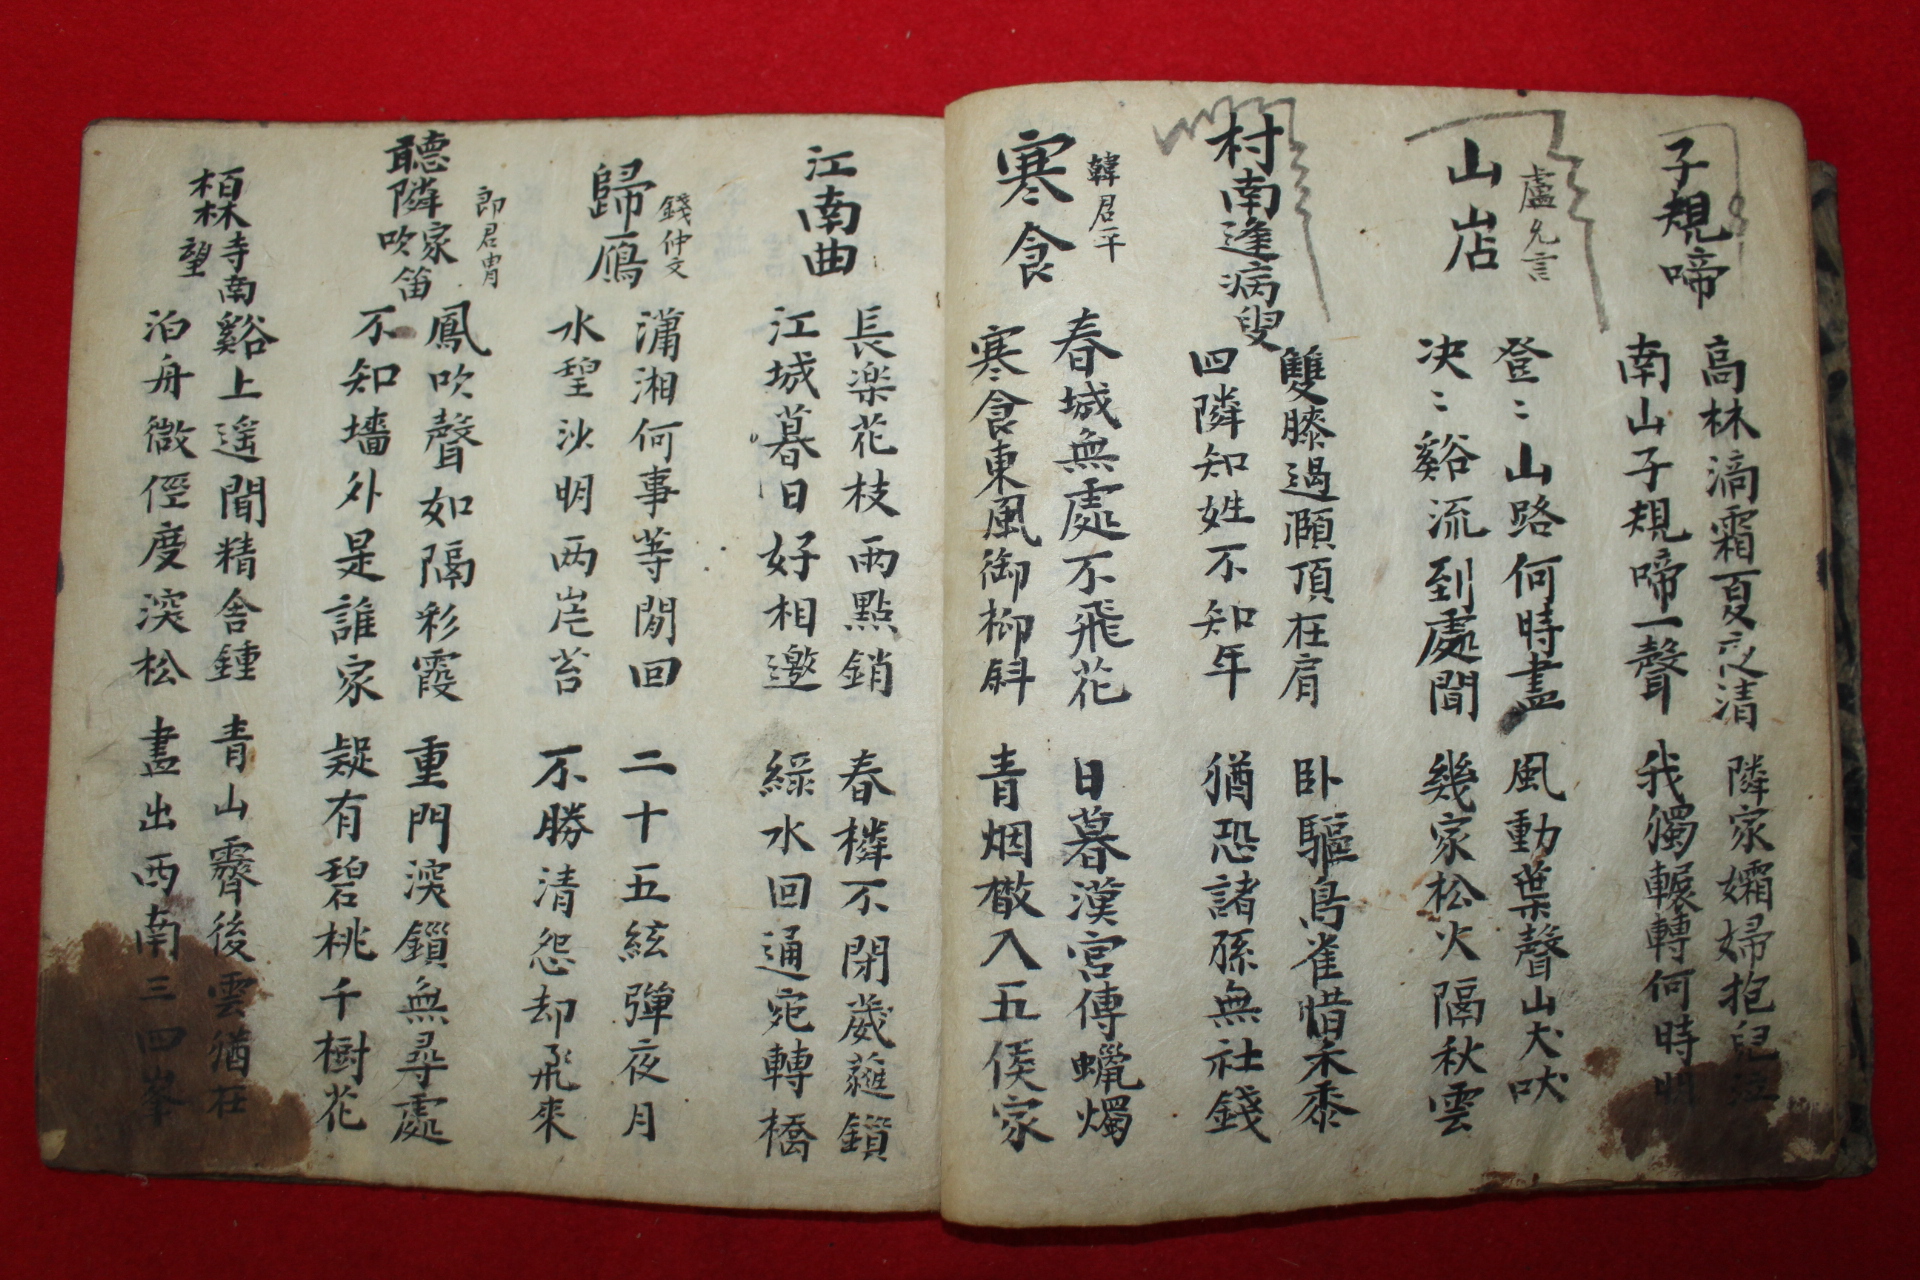 子規啼
高林滴霜夏夜清
南山子規啼一聲
隣家孀婦抱兒泣
我獨輾轉何時明
山店
盧允言
登〻山路何時盡
决〻谿流到處聞
風動葉聲山犬吠
幾家松火隔秋雲
村南逢病叟
雙膝過頤頂在肩
四隣知姓不知年
臥驅鳥雀惜禾黍
猶恐諸孫無社錢
寒食
韓君平
春城無處不飛花
寒食東風御柳斜
日暮漢宮傳蠟燭
青烟散入五侯家
江南曲
長楽花枝雨點銷
江城暮日好相邀
春樓不閉葳蕤鎖
綠水回通宛轉橋
歸鴈
錢仲文
瀟湘何事等閒回
水碧沙明两岸苔
二十五絃彈夜月
不勝清怨却飛來
聽隣家吹笛
郎君冑
鳳吹聲如隔彩霞
不知墻外是誰家
重門深鎖無尋處
疑有碧桃千樹花
栢林寺南望
谿上遙聞精舍鍾
泊舟微徑度深松
青山霽後雲猶在
畫出西南三四峯